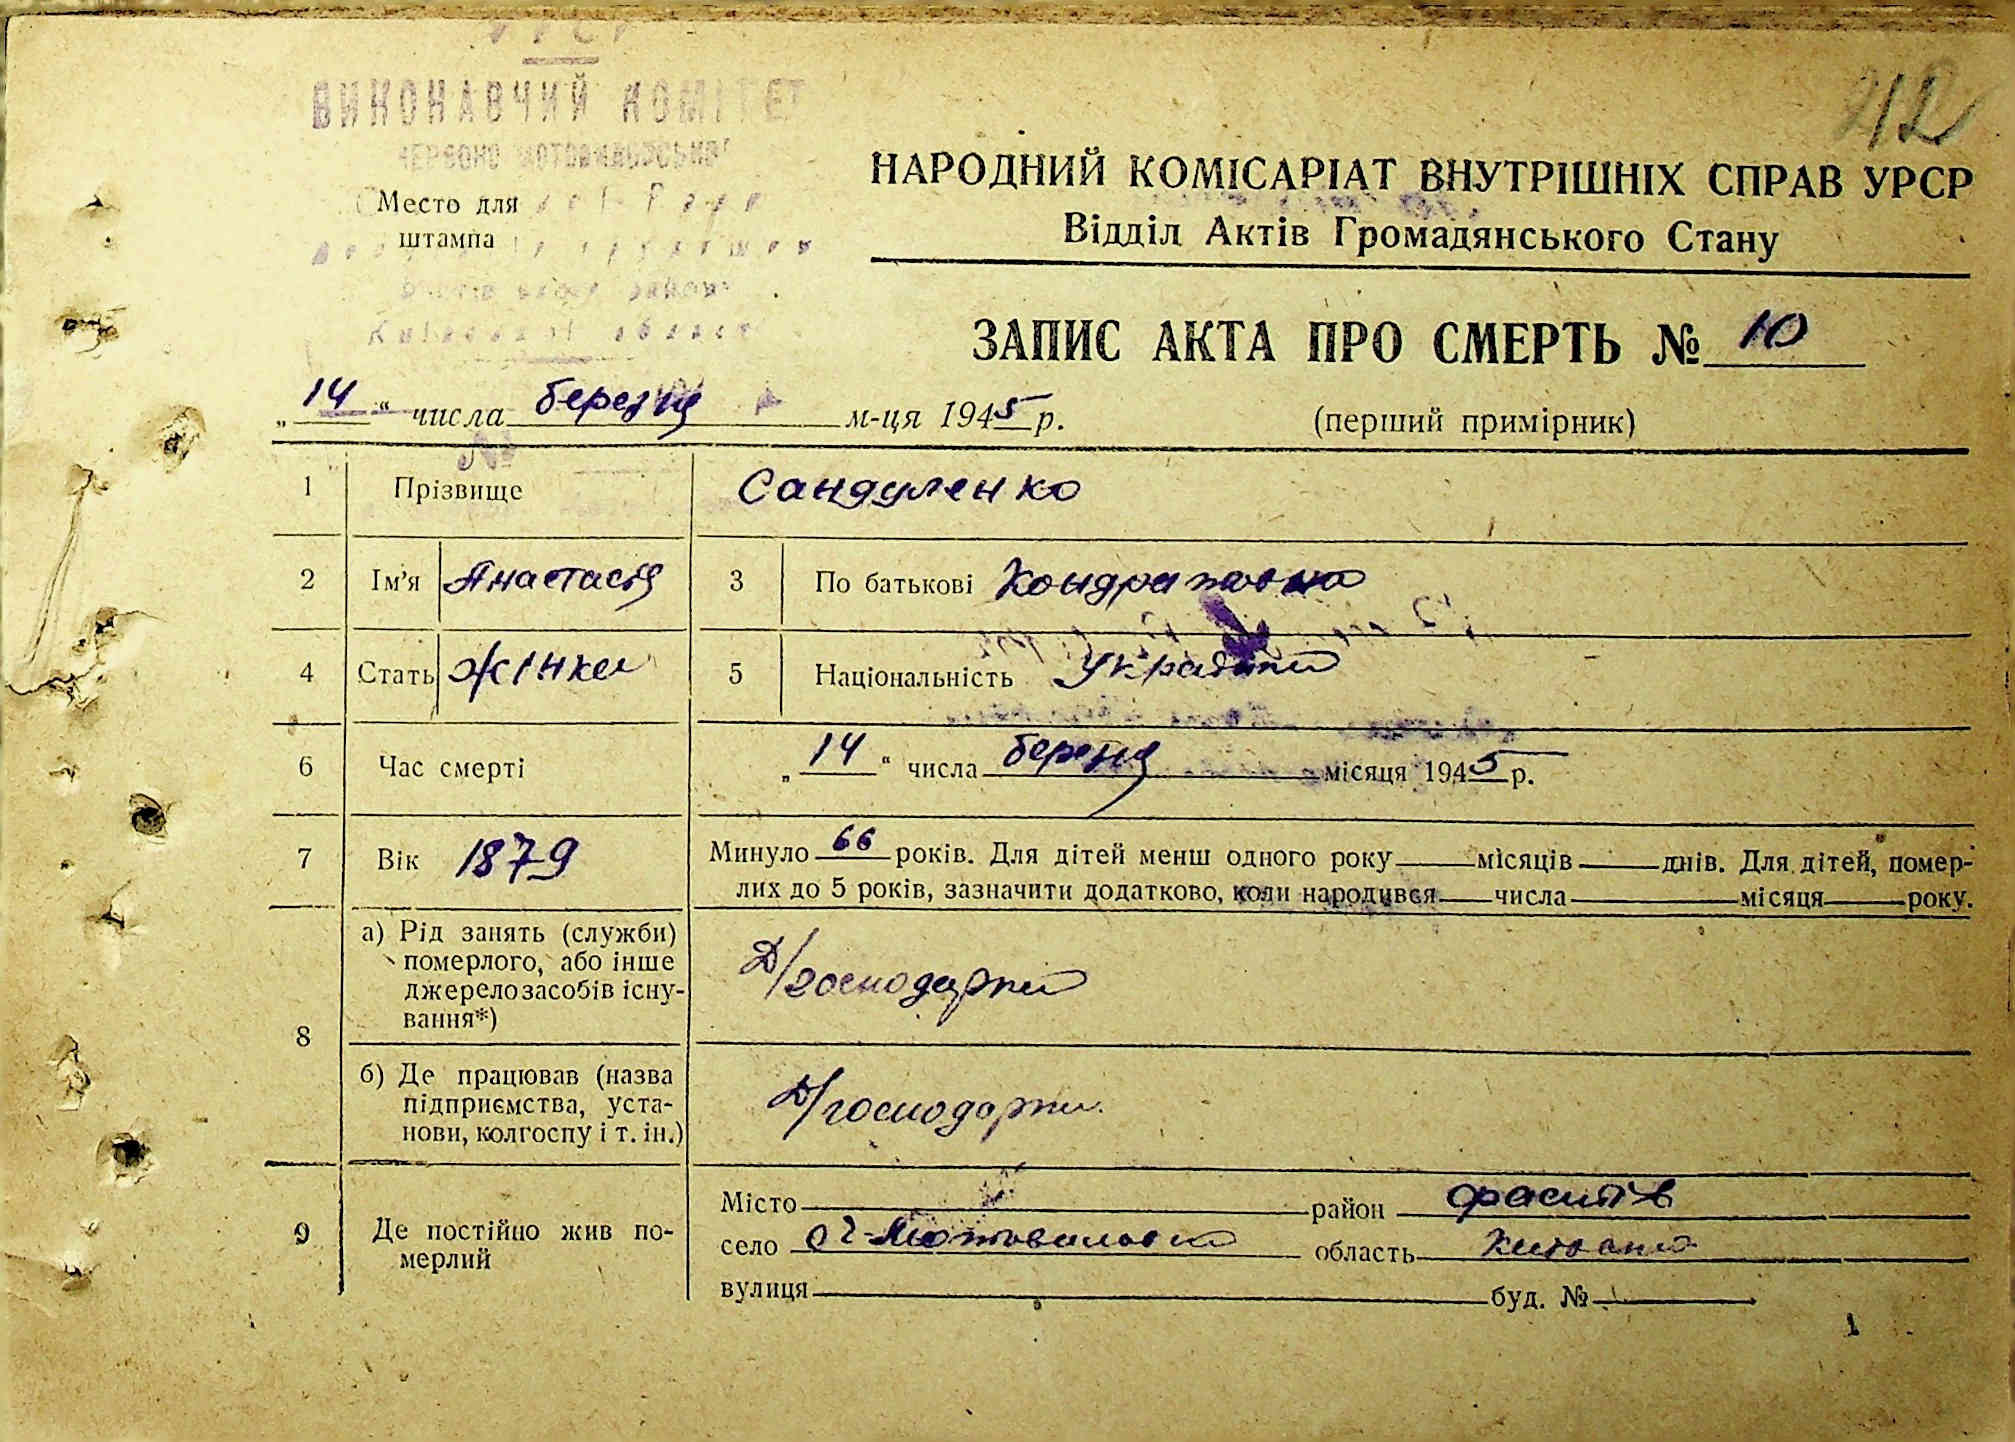 УРСР
ВИКОНАВЧИЙ КОМІТЕТ
ЧЕРВОНО МОТОВИЛІВСЬКОЇ
Место для
штампа
212
НАРОДНИЙ КОМІСАРІАТ ВНУТРІШНІХ СПРАВ УРСР
Відділ Актів Громадянського Стану
ЗАПИС АКТА ПРО СМЕРТЬ № 10
„14“ числа березня м-ця 1945 р.
(перший примірник)
1 Прізвище Сандуленко
2 Ім’я Анастасія 3 По батькові Кондратовна
4 Стать жінка 5 Національність Українка
6 Час смерті „14“ числа березня місяця 1945 р.
7 Вік 1879 Минуло 66 років. Для дітей менш одного року місяців днів. Для дітей, помер-
лих до 5 років, зазначити додатково, коли народився числа місяця року.
8 а) Рід занять (служби)
померлого, або інше
джерело засобів існу-
вання*)
Д/господарка
б) Де працював (назва
підприємства, уста-
нови, колгоспу і т. ін.)
Д/господарка
9 Де постійно жив по-
мерлий
Місто район Фастів
село Ч-Мотовиловка область Київська
вулиця буд. №